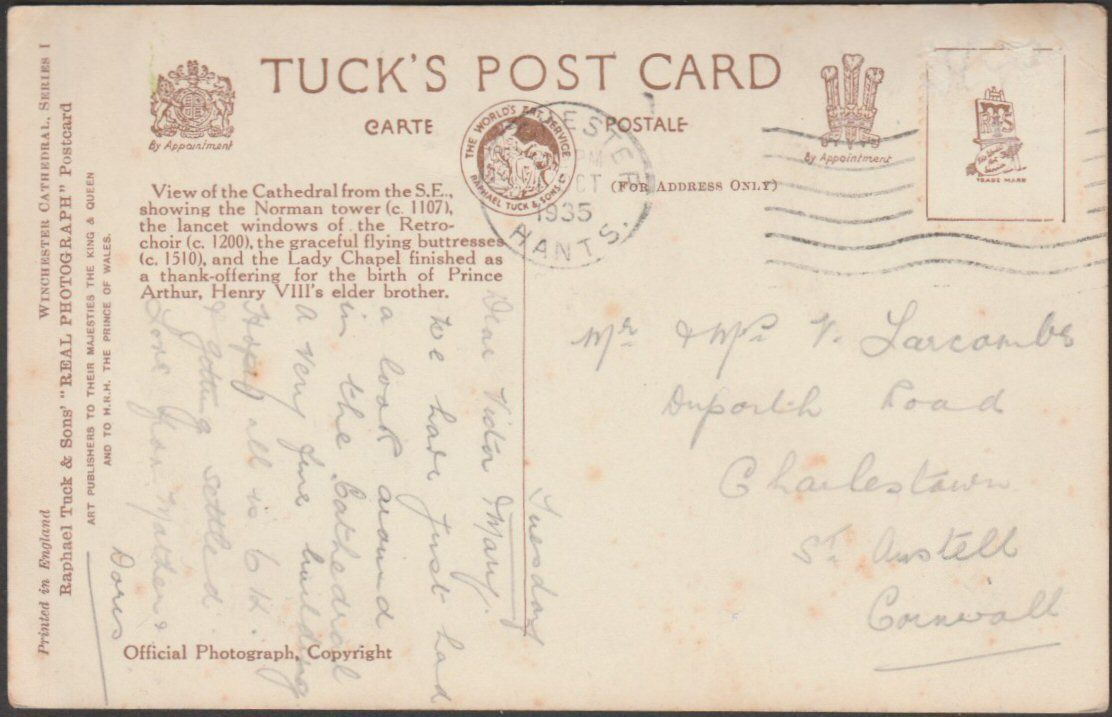 TUCK'S POST CARD
CARTE POSTALE
By Appointment
By Appointment
THE WORLD'S ART SERVICE
RAPHAEL TUCK & SONS LTD
TRADE MARK
(FOR ADDRESS ONLY)
PM
OCT
1935
HANTS.
View of the Cathedral from the S.E.,
showing the Norman tower (c. 1107),
the lancet windows of the Retro-
choir (c. 1200), the graceful flying buttresses
(c. 1510), and the Lady Chapel finished as
a thank-offering for the birth of Prince
Arthur, Henry VIII's elder brother.
Official Photograph, Copyright
Printed in England WINCHESTER CATHEDRAL, SERIES I
Raphael Tuck & Sons' "REAL PHOTOGRAPH" Postcard
ART PUBLISHERS TO THEIR MAJESTIES THE KING & QUEEN
AND TO H.R.H. THE PRINCE OF WALES.
Tuesday
Dear Victor & Mary.
We have just had
a look around
in the Cathedral
A very fine building
Hope all is O.K.
& getting settled.
Love from Mother &
Doris
Mr & Mrs V. Larcombe
Duporth Road
Charlestown
St. Austell
Cornwall